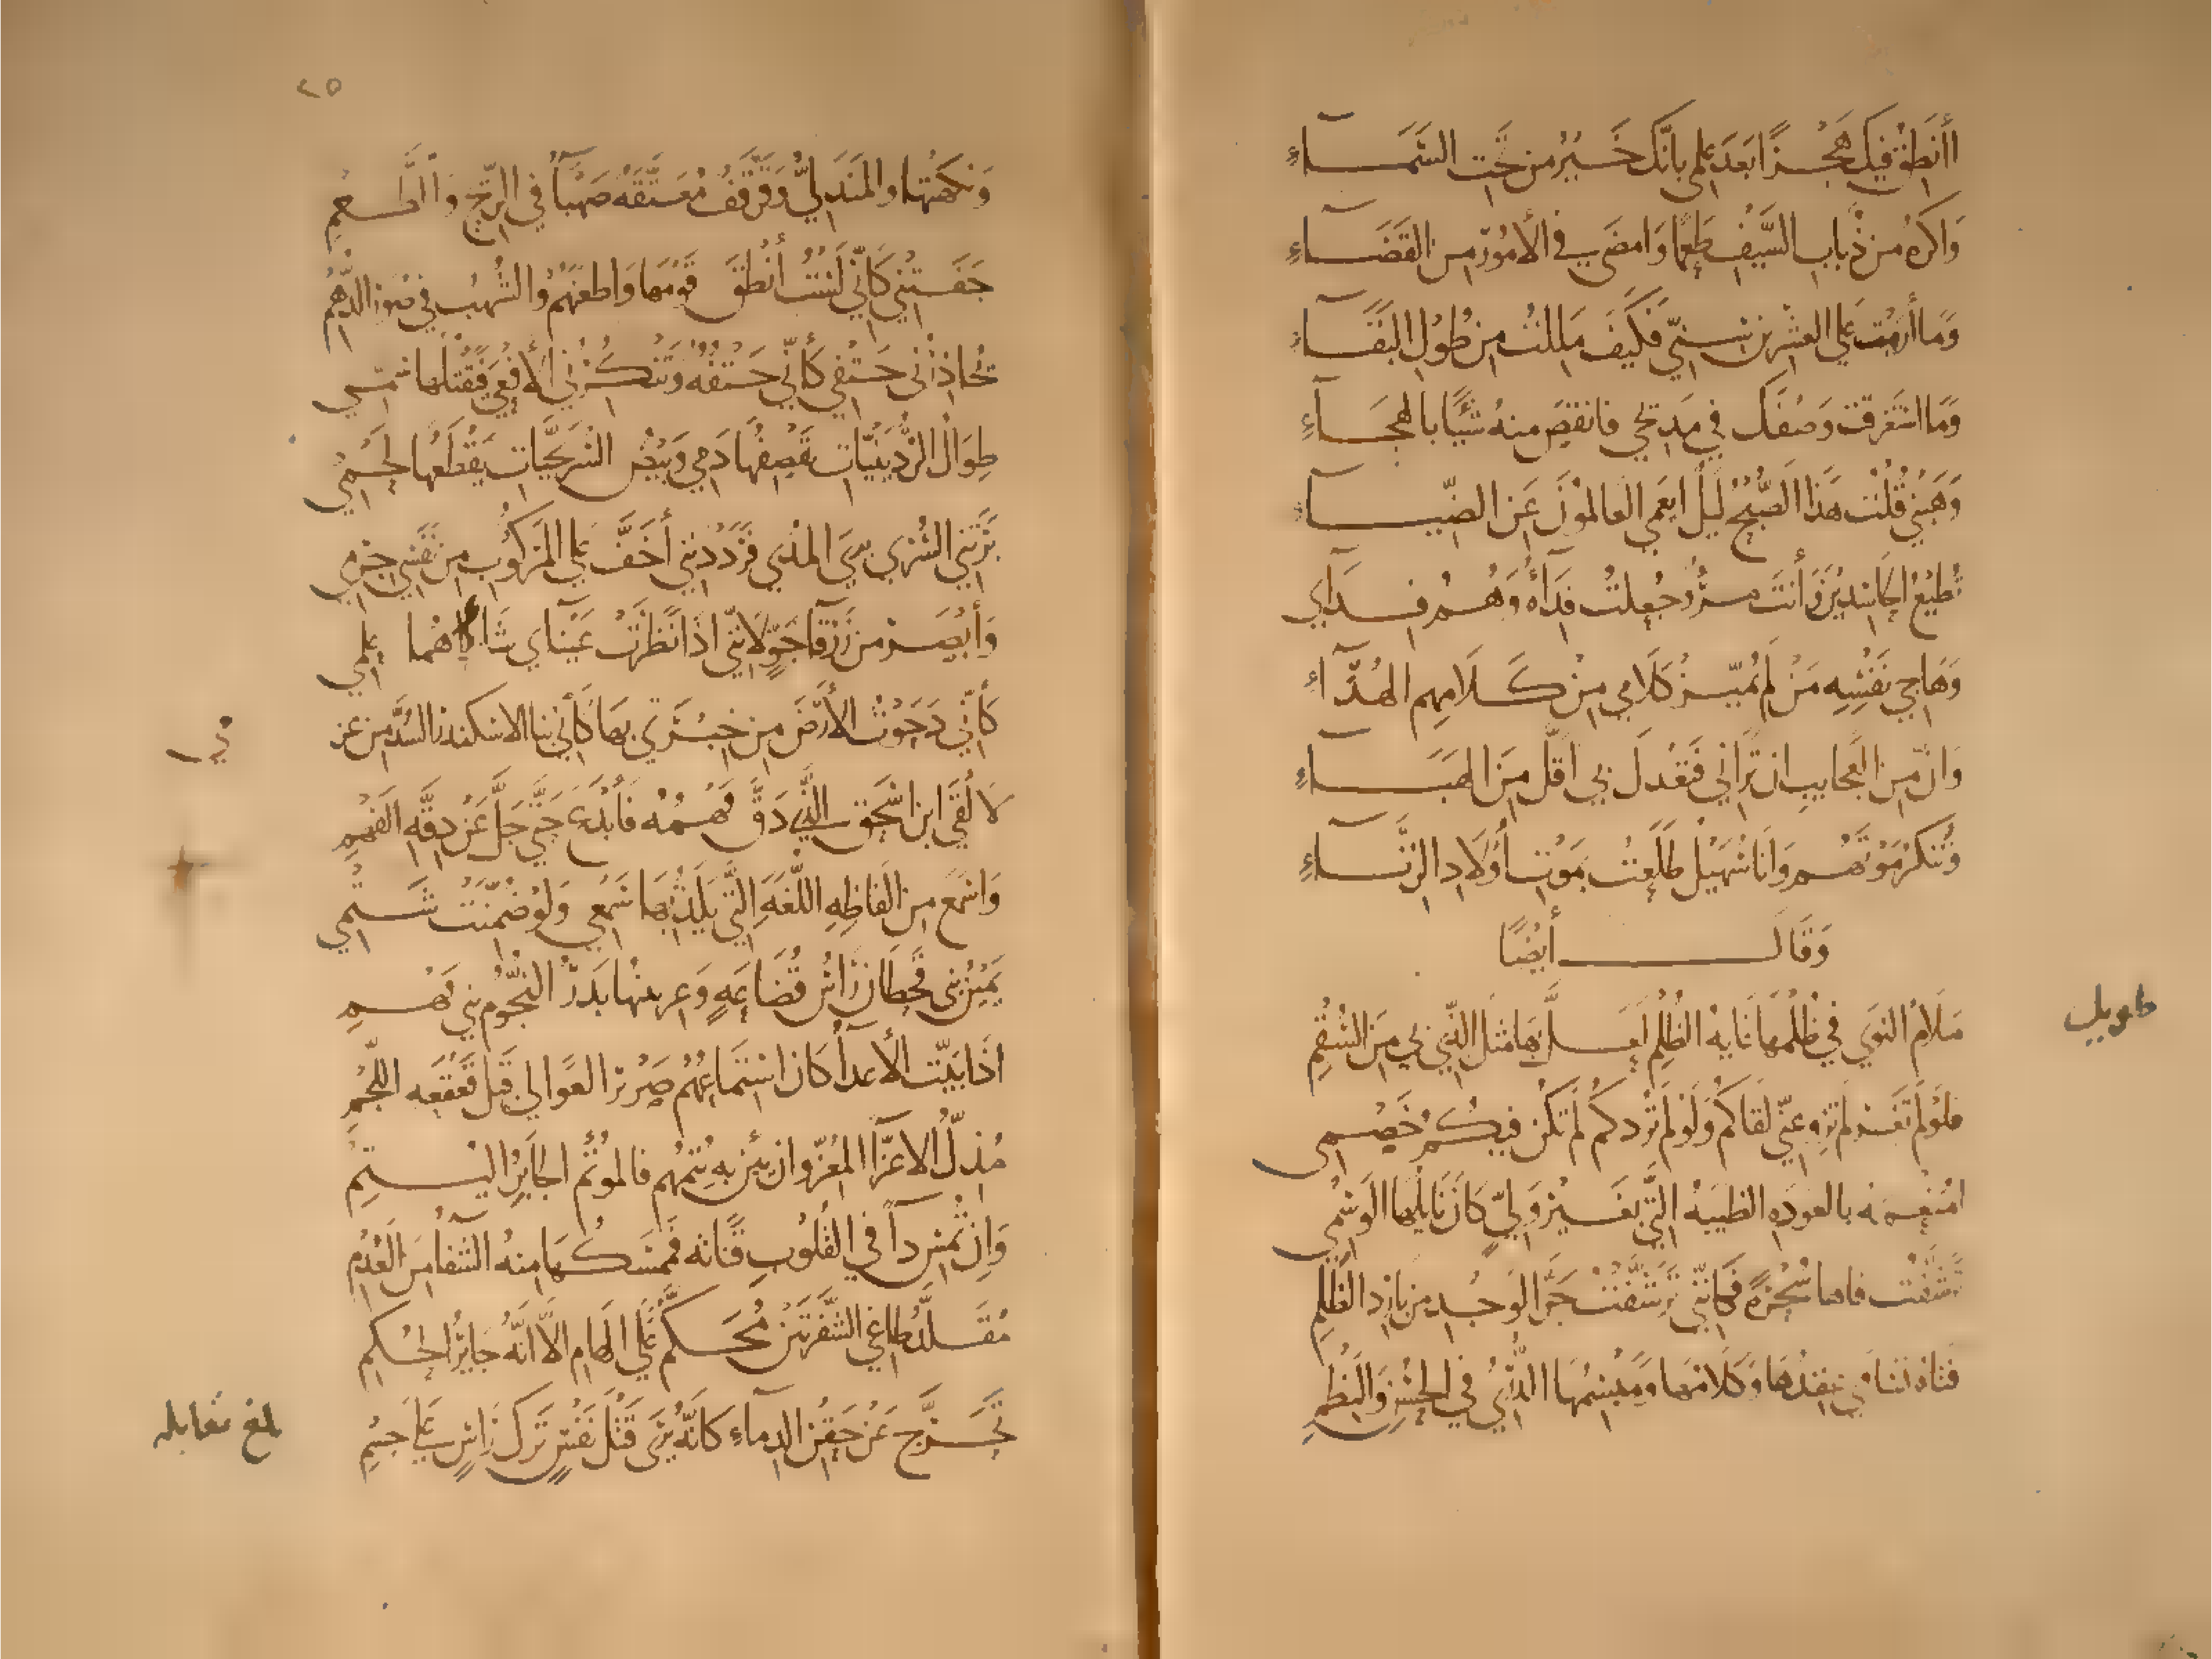 أأنطق فيك هجرًا بعد علمي بأنك خير من تحت السماء
وأكره من ذباب السيف طعمًا وأمضى في الأمور من القضاء
وما أرمت على العشرين سني فكيف مللت من طول البقاء
وما استغرقت وصفك في مديحي فانقص منه شيئًا بالهجاء
وهبني قلت هذا الصبح ليل ايعمى العالمون عن الضياء
تطيع الحاسدين وأنت مرء جعلت فداءه وهم فدائي
وهاجي نفسه من لم يميز كلامي من كلامهم الهذاء
وان من العجايب ان تراني فتعدل بي اقل من الهباء
وتنكر موتهم وانا سهيل طلعت بموت أولاد الزناء
وقال أيضًا
ملام النوى في ظلمها غاية الظلم لعل بها مثل الذي بي من السقم
طويل
فلو لم تغر لم تزو عني لقاكم ولو لم تردكم لم تكن فيكم خصمي
امنعمة بالعودة الظبية التي بغير ولي كان نايلها الوسمي
ترشفت فاها سحرة فكأنني ترشفت حر الوجد من بارد الظلم
فتاة تساوى عقدها وكلامها ومبسمها الدري في الحسن والنظم
٢٥
ونكهتها والمندلي وقرقف معتقة صهبا في الريح والطعم
جفتني كأني لست أنطق قومها واطعنهم والشهب في صور الدهم
تحاذرني حتفي كأني حتفه وتنكزني الأفعى فيقتلها سمي
طوال الردينيات يقصفها دمي وبيض السريجيات يقطعها لحمي
برتني السرى بري المدى فرددنني أخف على المركوب من نفسي جرمي
وأبصر من زرقا جو لانني اذا نظرت عيناي شاءهما علمي
كأني دحوت الأرض من خبرتي بها كأني بنا الاسكندر السد من عزمي
لألقى ابن اسحق الذي دق فهمه فأبدع حتى جل عن دقة الفهم
واسمع من الفاظه اللغة التي يلذ بها سمعي ولو ضمنت شتمي
يمين بني قحطان راس قضاعة وعرنينها بدر النجوم بني فهم
اذا بيت الأعدا كان استماعهم صرير العوالي قبل قعقعة اللجم
مذل الاعزا المعز وان يئن به يتمهم فالموتم الجابر اليتم
وان تمس دآ في القلوب قناته فممسكها منه الشفا من العدم
مقلد طاغي الشفرتين محكم على الهام الا انه جاير الحكم
تحرج عن حقن الدماء كأنه يرى قتل نفس ترك راس على جسم
بلغ مقابله